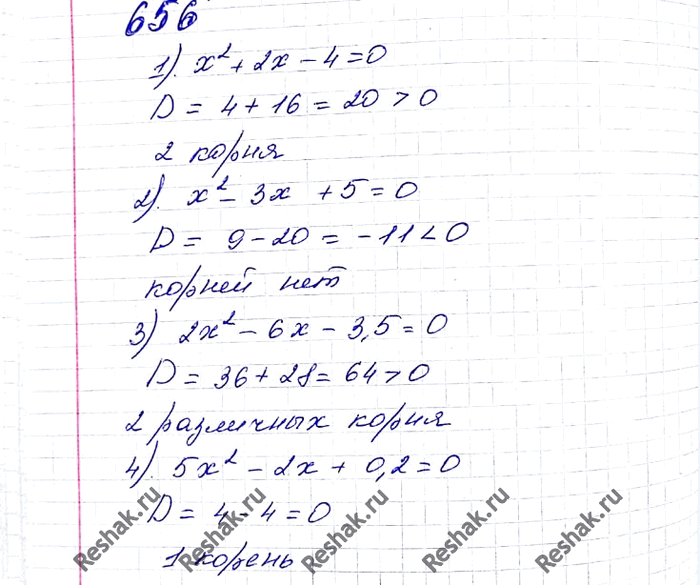 656
1). x² + 2x - 4 = 0
D = 4 + 16 = 20 > 0
2 корня
2). x² - 3x + 5 = 0
D = 9 - 20 = -11 < 0
корней нет
3) 2x² - 6x - 3,5 = 0
D = 36 + 28 = 64 > 0
2 различных корня
4). 5x² - 2x + 0,2 = 0
D = 4 - 4 = 0
1 корень
Reshak.ru Reshak.ru Reshak.ru Reshak.ru Reshak.ru